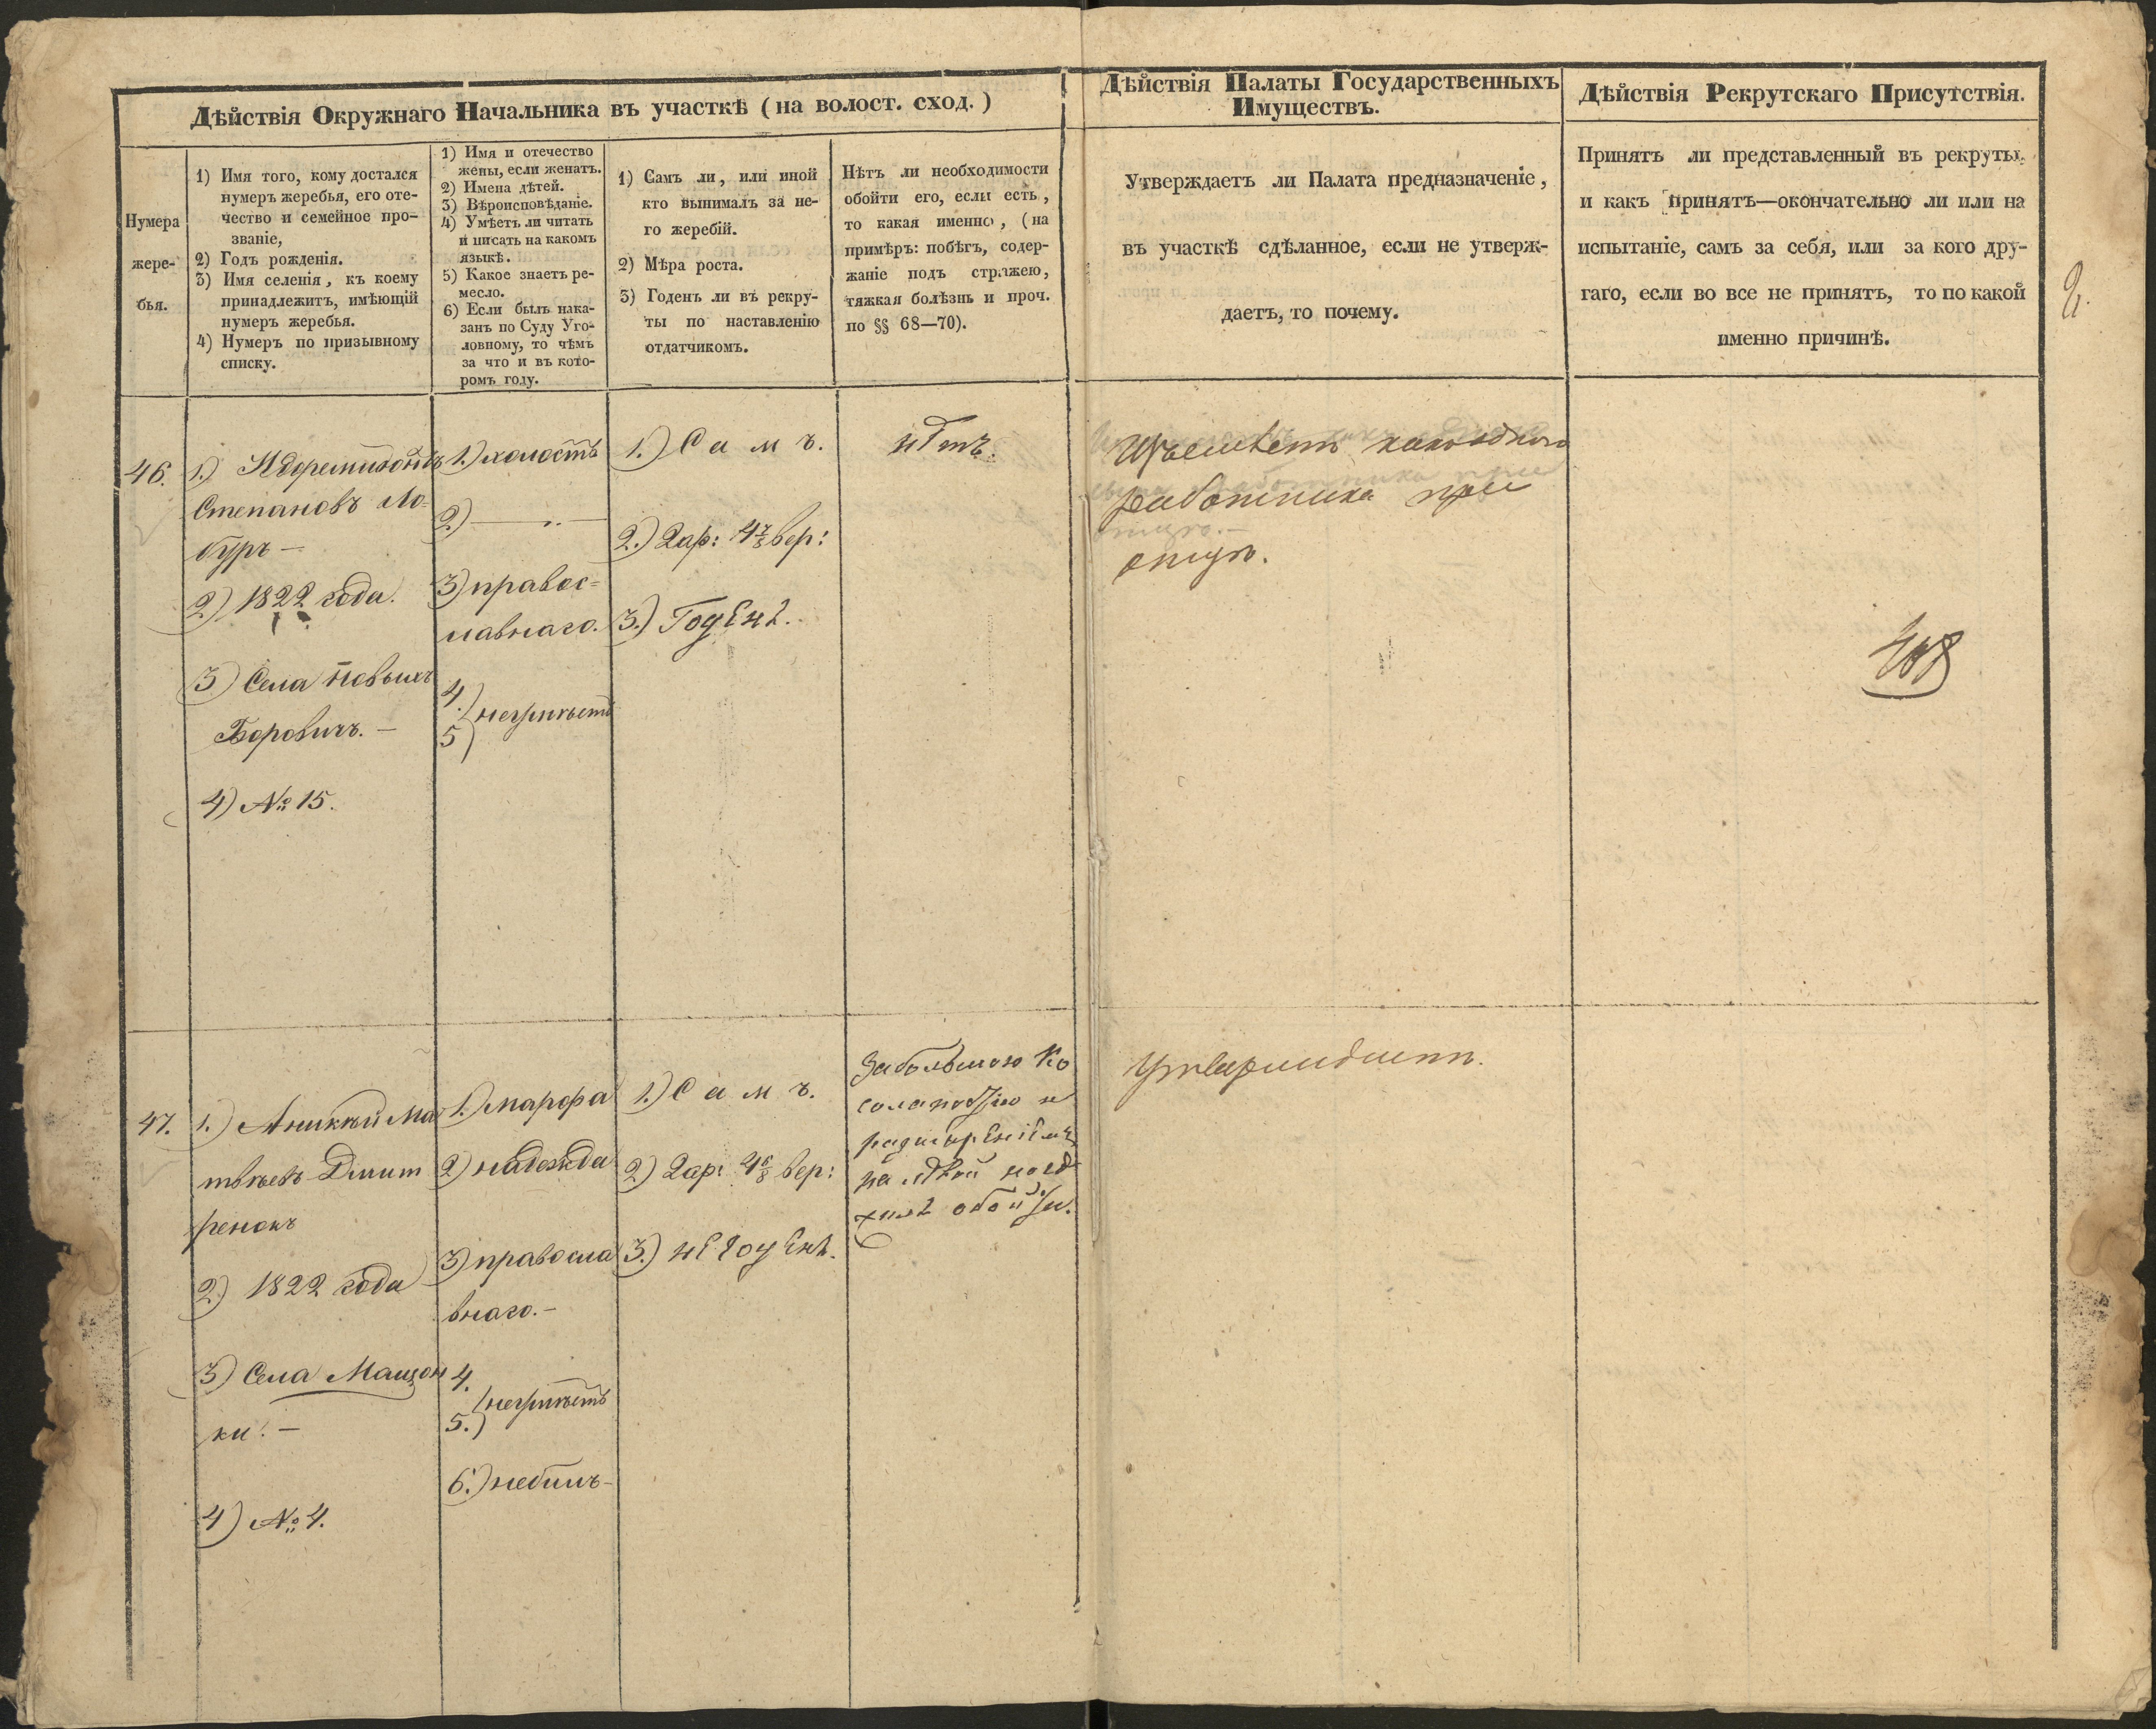 Дѣйствія Окружнаго Начальника въ участкѣ (на волост. сход.)
Нумера
жере-
бья.
1) Имя того, кому достался
нумеръ жеребья, его оте-
чество и семейное про-
званіе,
2) Годъ рожденія.
3) Имя селенія, къ коему
принадлежитъ, имѣющій
нумеръ жеребья.
4) Нумеръ по призывному
списку.
1) Имя и отечество
жены, если женатъ.
2) Имена дѣтей.
3) Вѣроисповѣданіе.
4) Умѣетъ ли читать
и писать на какомъ
языкѣ.
5) Какое знаетъ ре-
месло.
6) Если былъ нака-
занъ по Суду Уго-
ловному, то чѣмъ
за что и въ кото-
ромъ году.
1) Самъ ли, или иной
кто вынималъ за не-
го жеребій.
2) Мѣра роста.
3) Годенъ ли въ рекру-
ты по наставленію
отдатчикомъ.
Нѣтъ ли необходимости
обойти его, если есть,
то какая именно, (на
примѣръ: побѣгъ, содер-
жаніе подъ стражею,
тяжкая болѣзнь и проч.
по §§ 68—70).
Дѣйствія Палаты Государственныхъ
Имуществъ.
Утверждаетъ ли Палата предназначеніе,
въ участкѣ сдѣланное, если не утверж-
даетъ, то почему.
Дѣйствія Рекрутскаго Присутствія.
Принятъ ли представленный въ рекруты
и какъ принятъ—окончательно ли или на
испытаніе, самъ за себя, или за кого дру-
гаго, если во все не принятъ, то по какой
именно причинѣ.
46.
1.)
Степановъ Ло-
буръ —
2.) 1822 года.
3) Села Новыхъ
Боровичъ. —
4) № 15.
1.) холостъ
2) — „ —
3) правос=
лавнаго.
4.
5) неумѣетъ
1.) Самъ.
2.) 2 ар: 4 7/8 вер:
3.) Годенъ.
нѣтъ.
какъ однаго
работника при
отцѣ.
47.
1.) Аникѣй Ма
твѣевъ Дмит
ренокъ
2) 1822 года
3) Села Мащон
ки. —
4) № 4.
1.) Марфа
2) надежда
3) правосла
внаго. —
4.
5.) неумѣетъ
6.) небылъ —
1.) Самъ.
2) 2 ар: 4 6/8 вер:
3.) не годенъ.
За большою ко
и
обойти.
Утверждаетъ.